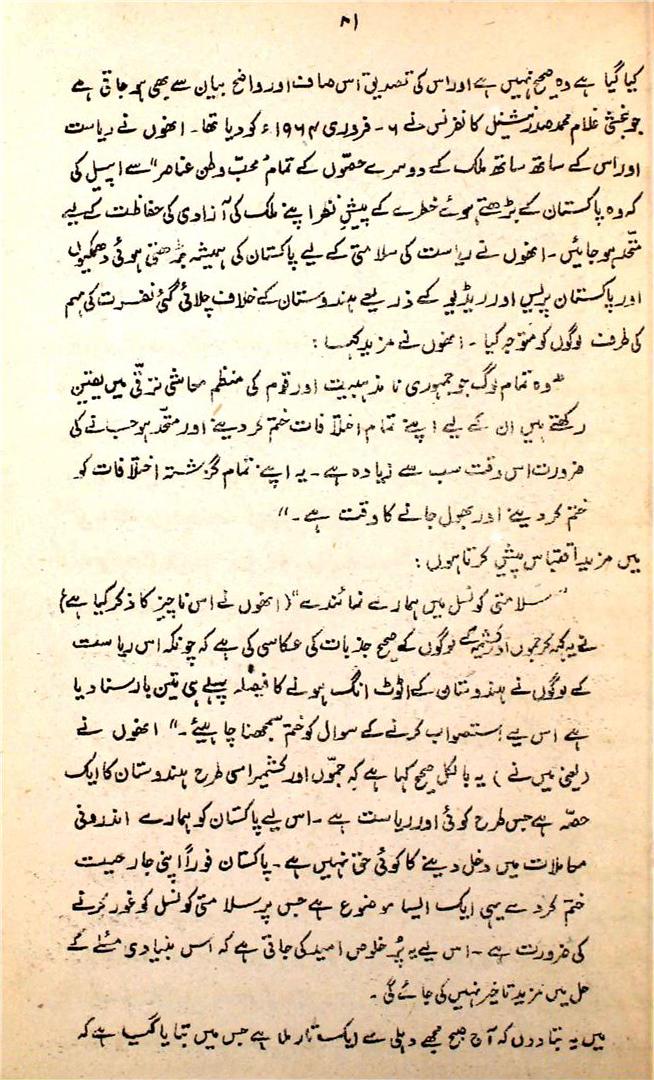 ۸۱
کیا گیا ہے وہ صحیح نہیں ہے اور اس کی تصدیق اس صاف اور واضح بیان سے بھی ہو جاتی ہے
جو بخشی غلام محمد صدر نیشنل کانفرنس نے ۶ - فروری ۱۹۶۴ء کو دیا تھا ۔ انھوں نے ریاست
اور اس کے ساتھ ساتھ ملک کے دوسرے حصّوں کے تمام "محبّ وطن عناصر" سے اپیل کی
کہ وہ پاکستان کے بڑھتے ہوئے خطرے کے پیش نظر اپنے ملک کی آزادی کی حفاظت کے لیے
متّحد ہو جائیں ۔ انھوں نے ریاست کی سلامتی کے لیے پاکستان کی ہمیشہ بڑھتی ہوئی دھمکیوں
اور پاکستان پریس اور ریڈیو کے ذریعے ہندوستان کے خلاف چلائی گئی نفرت کی مہم
کی طرف لوگوں کو متوجہ کیا ۔ انھوں نے مزید کہا :
"وہ تمام لوگ جو جمہوری نامذہبیت اور قوم کی منظم معاشی ترقّی میں یقین
رکھتے ہیں ان کے لیے اپنے تمام اختلافات ختم کر دینے اور متّحد ہو جانے کی
ضرورت اس وقت سب سے زیادہ ہے ۔ یہ اپنے تمام گزشتہ اختلافات کو
ختم کر دینے اور بھول جانے کا وقت ہے ۔"
میں مزید اقتباس پیش کرتا ہوں :
"سلامتی کونسل میں ہمارے نمائندے" (انھوں نے اس ناچیز کا ذکر کیا ہے)
نے یہ کہہ کر جموں اور کشمیر کے لوگوں کے صحیح جذبات کی عکاسی کی ہے کہ چونکہ اس ریاست
کے لوگوں نے ہندوستان کے اٹوٹ انگ ہونے کا فیصلہ پہلے ہی تین بار سنا دیا
ہے اس لیے استصواب کرنے کے سوال کو ختم سمجھنا چاہیئے ۔" انھوں نے
(یعنی میں نے) یہ بالکل صحیح کہا ہے کہ جموّں اور کشمیر اسی طرح ہندوستان کا ایک
حصّہ ہے جس طرح کوئی اور ریاست ہے ۔ اس لیے پاکستان کو ہمارے اندرونی
معاملات میں دخل دینے کا کوئی حق نہیں ہے ۔ پاکستان فوراً اپنی جارحیت
ختم کر دے یہی ایک ایسا موضوع ہے جس پر سلامتی کونسل کو غور کرنے
کی ضرورت ہے ۔ اس لیے یہ پُر خلوص امید کی جاتی ہے کہ اس بنیادی مسئلے کے
حل میں مزید تاخیر نہیں کی جائے گی ۔
میں یہ بتا دوں کہ آج صبح مجھے دہلی سے ایک تار ملا ہے جس میں بتایا گیا ہے کہ